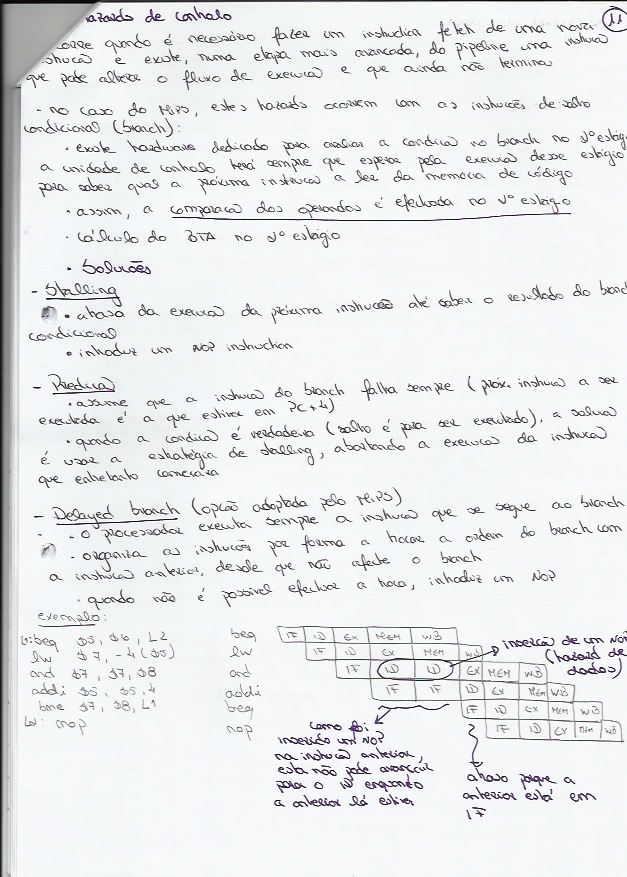 hazards de controlo
ocorre quando é necessário fazer um instruction fetch de uma nova 11
instrucao e existe, numa etapa mais avancada, do pipeline uma instrucao
que pode alterar o fluxo de execucao e que ainda não terminou
- no caso do MIPS, estes hazards ocorrem com as instrucões de salto
condicional (branch):
• existe hardware dedicado para avaliar a condicao no branch no 2º estágio
a unidade de controlo terá sempre que esperar pela execucao desse estágio
para saber qual a próxima instrucao a ler da memoria de código
• assim, a comparacao dos operandos é efectuada no 2º estágio
• cálculo do BTA no 2º estágio
• Solucões
- Stalling
• atrasa da execucao da próxima instrucão até saber o resultado do branch
condicional
• introduz um NOP instruction
- Predicao
• assume que a instrucao do branch falha sempre (próx. instrucao a ser
executada é a que estiver em PC+4)
• quando a condicao é verdadeira (salto é para ser executado), a solucao
é usar a estratégia de stalling, abortando a execucao da instrucao
que entretanto comecara
- Delayed branch (opcão adoptada pelo MIPS)
• o processador executa sempre a instrucao que se segue ao branch
• organiza as instrucões por forma a trocar a ordem do branch com
a instrucao anterior, desde que não afecte o branch
• quando não é possivel efectuar a troca, introduz um NOP
exemplo:
L1: beq $5, $6, L2 beq IF ID EX MEM WB
lw $7, -4($5) lw IF ID EX MEM WB
and $7, $7, $8 and IF ID ID EX MEM WB
addi $5, $5, 4 addi IF IF ID EX MEM WB
bne $7, $8, L1 beq IF ID EX MEM WB
L2: nop nop IF ID EX MEM WB
insercão de um NOP
(hazard de
dados)
como foi
inserido um NOP
na instrucao anterior,
esta não pode avancar
para o ID enquanto
a anterior lá estiver
atraso porque a
anterior está em
IF